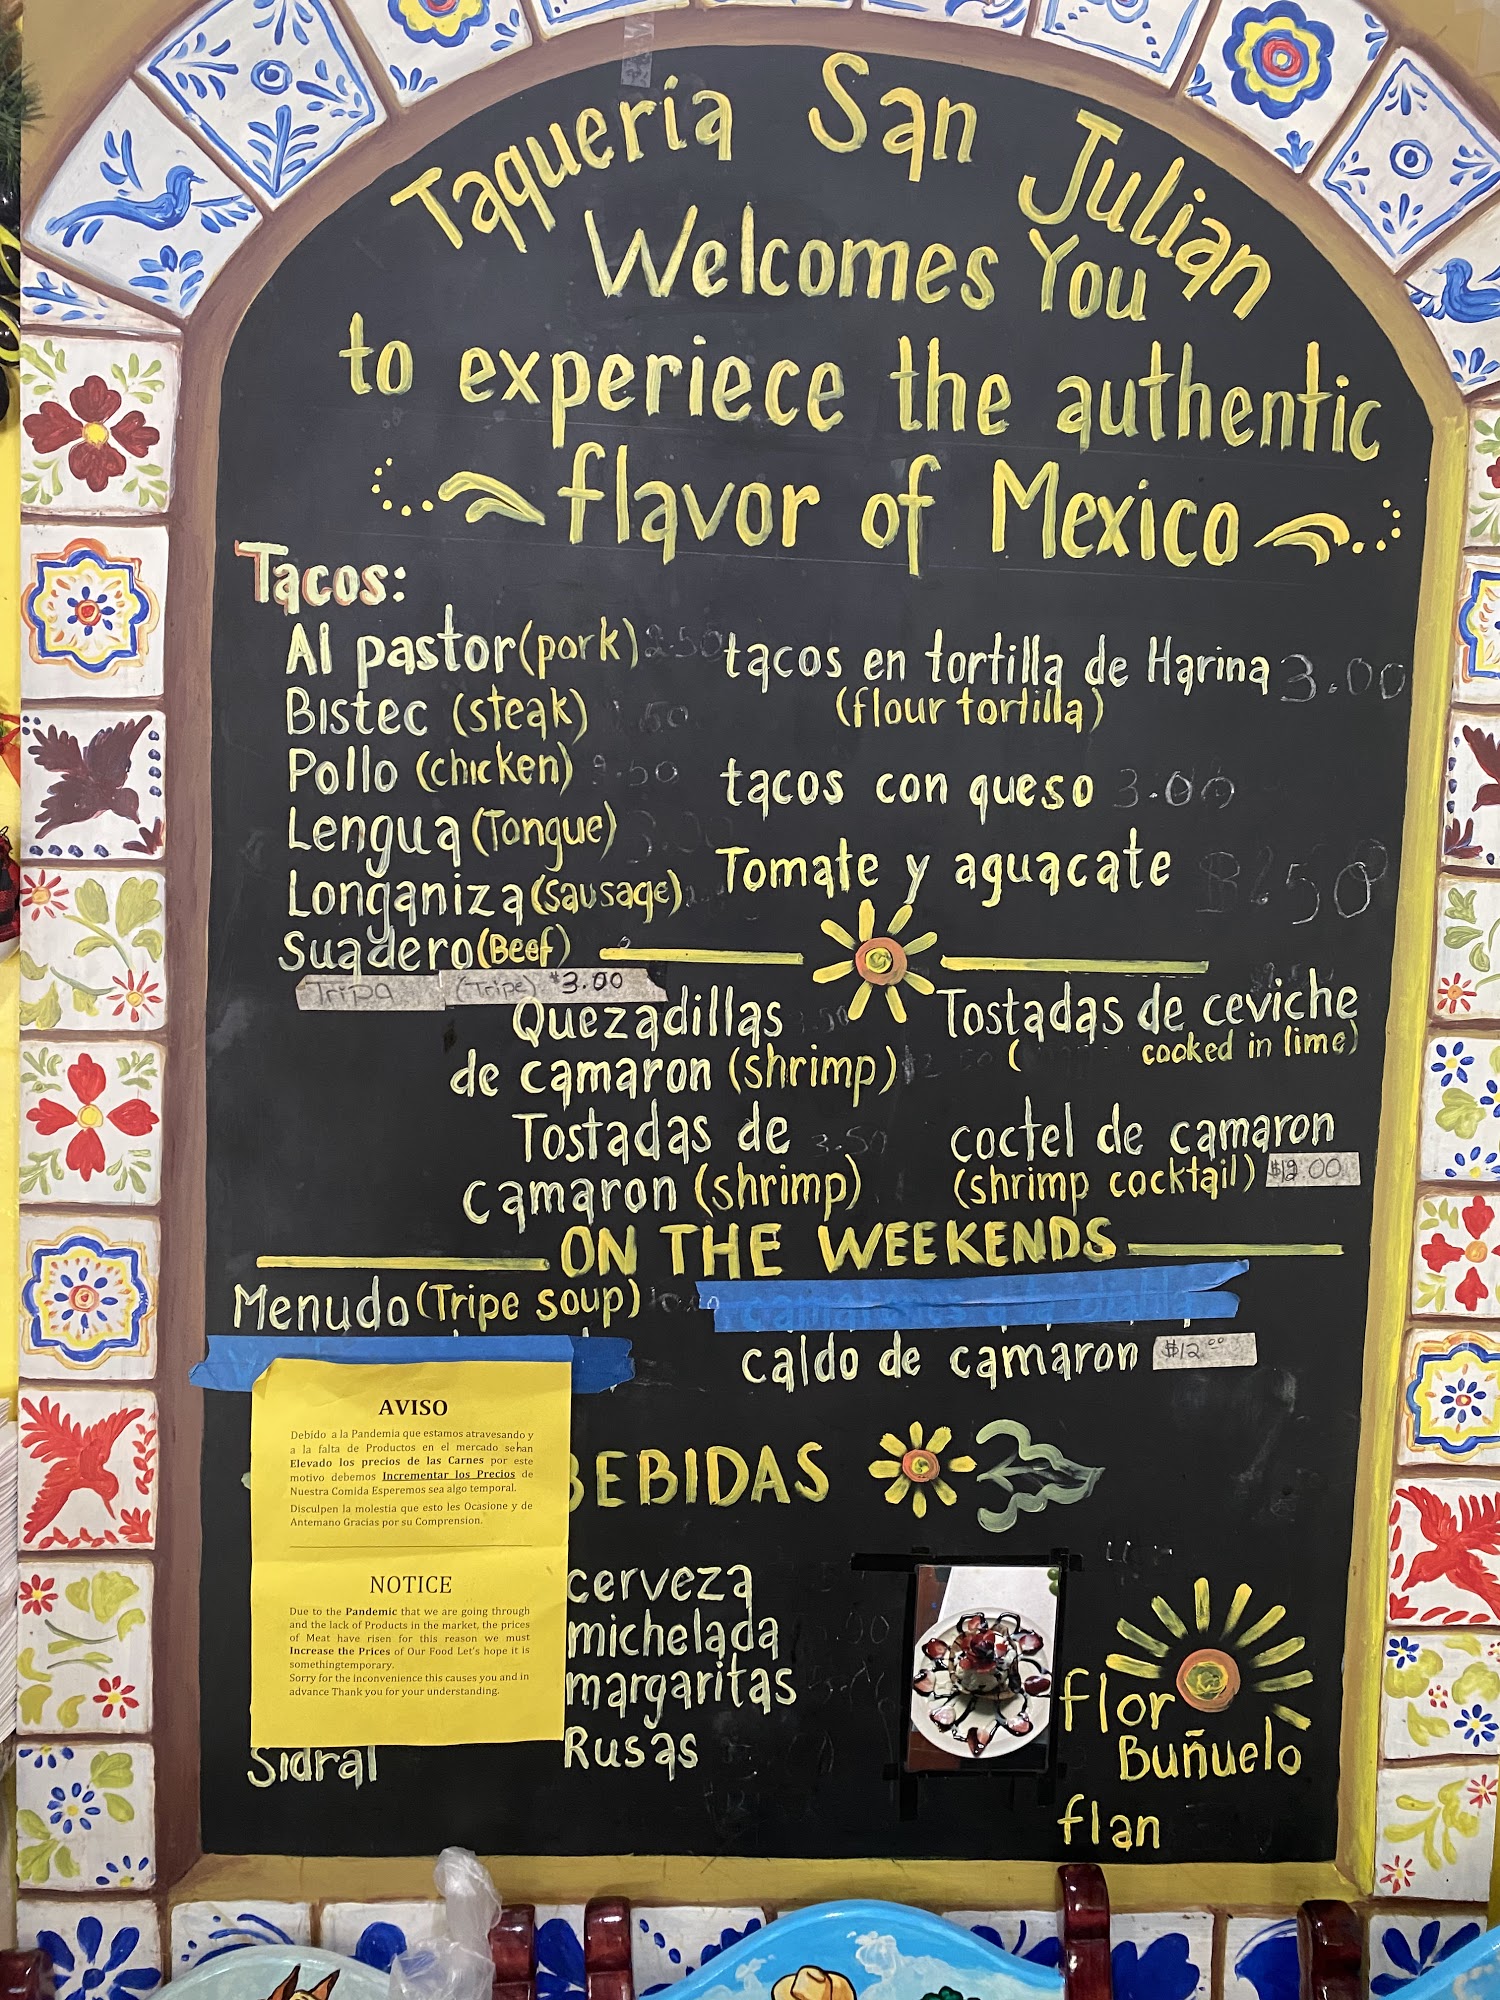 Taqueria San Julian
Welcomes You
to experiece the authentic
flavor of Mexico
Tacos:
Al pastor (pork) 2.50
Bistec (steak) .50
Pollo (chicken) .50
Lengua (Tongue) 3.00
Longaniza (Sausage)
Suadero (Beef)
Tripa (Tripe) $3.00
tacos en tortilla de Harina 3.00
(flour tortilla)
tacos con queso 3.00
Tomate y aguacate .50
Quezadillas
de camaron (shrimp)
Tostadas de 3.50
camaron (shrimp)
Tostadas de ceviche
( cooked in lime)
coctel de camaron
(shrimp cocktail) $12.00
ON THE WEEKENDS
Menudo (Tripe soup)
caldo de camaron $12.00
AVISO
Debido a la Pandemia que estamos atravesando y
a la falta de Productos en el mercado sehan
Elevado los precios de las Carnes por este
motivo debemos Incrementar los Precios de
Nuestra Comida Esperemos sea algo temporal.
Disculpen la molestia que esto les Ocasione y de
Antemano Gracias por su Comprension.
NOTICE
Due to the Pandemic that we are going through
and the lack of Products in the market, the prices
of Meat have risen for this reason we must
Increase the Prices of Our Food Let's hope it is
somethingtemporary.
Sorry for the inconvenience this causes you and in
advance Thank you for your understanding.
Sidral
BEBIDAS
cerveza
michelada
margaritas
Rusas
flor
Buñuelo
flan